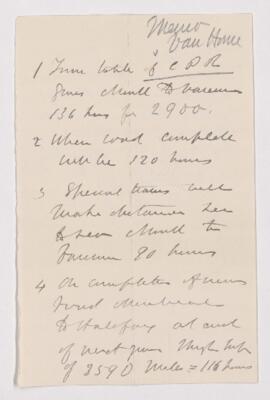 Memo
Van Horne
1 Time table of C P R
gives Montl to Vancouver
136 hrs for 2900.
2 When road complete
will be 120 hours
3 Special trains will
make distance
Montl to
Vancouver 90 hours
4 On completion
to Halifax at end
of next year
of 3590 miles = 116 hours